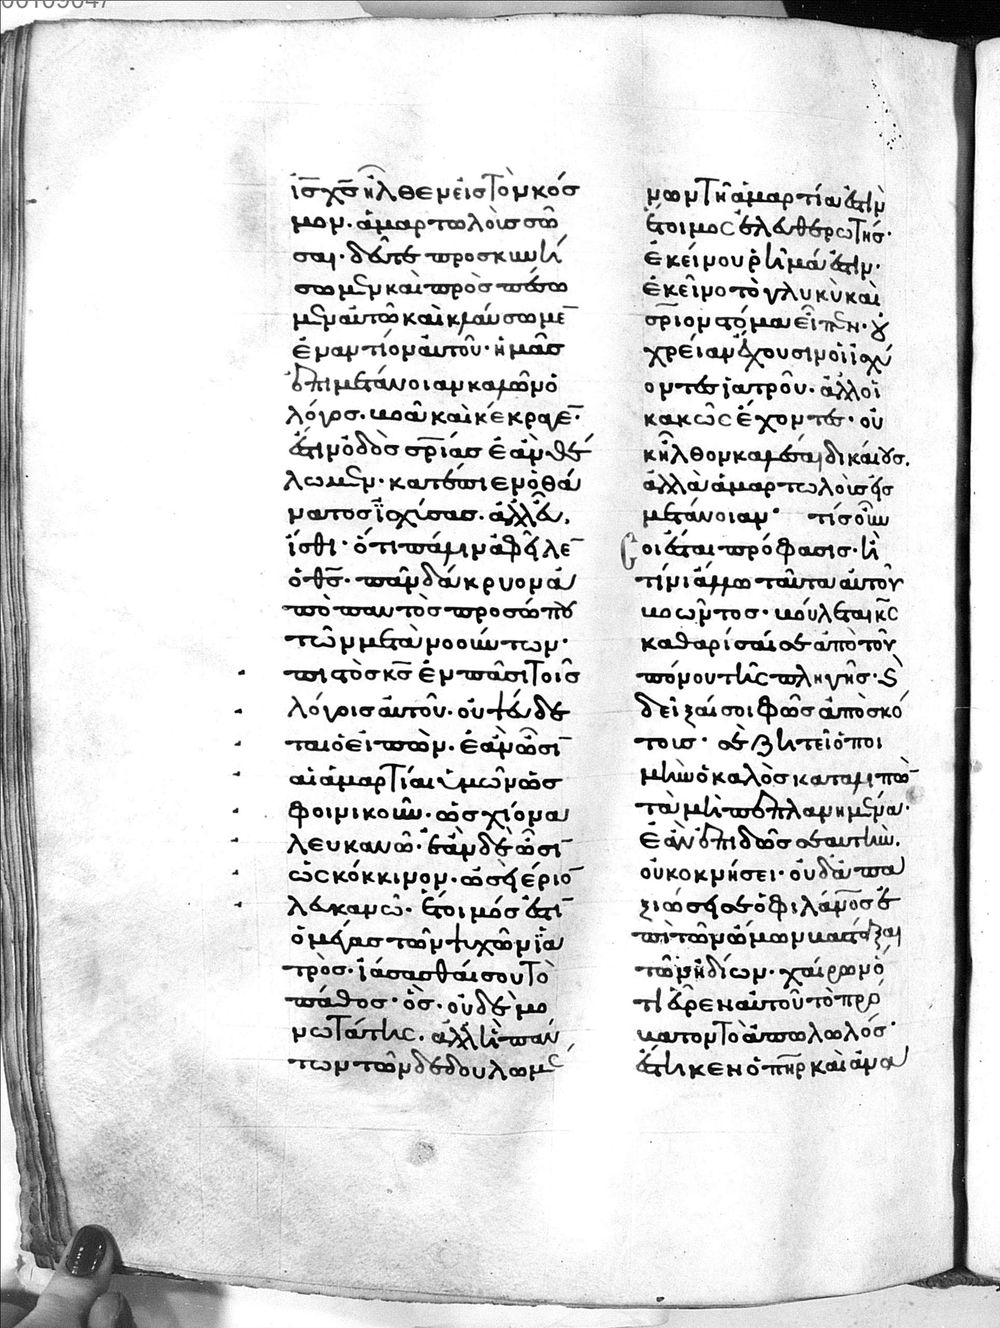 ἰς χς ἦλθεν εἰς τὸν κόσ
μον· ἁμαρτωλοὺς σῶ
σαι· δεῦτε προσκυνή
σωμεν καὶ προσπέσω
μεν αὐτῶ καὶ κλαύσωμε̅
ἐναντίον αὐτοῦ· ἡμᾶσ
ἐπιμετάνοιαν καλῶν ὁ
λόγοσ. βοᾶ καὶ κέκραγε̅·
ἐστιν ὁδὸσ σ̅ρίασ ἐὰν θέ
λωμεν· κατέπιεν ὁ θά
νατοσ ἰσχύσασ. ἀλλ' εὖ
ἴσθι· ὅτι πάλιν ἀφεῖλε̅
ὁ θς̅· πᾶν δάκρυον ἀ
πὸ παντὸσ προσώπου
τῶν μετανοούντων·
πιστὸσ κς̅ ἐν πᾶσι τοῖσ
λόγοισ αὐτοῦ. οὐ ψεύδε
ται ὁ εἰπών. ἐὰν ὦσι̅
αἱ ἁμαρτίαι ὑμῶν ὡσ
φοινικοῦν. ὡσ χιόνα
λευκανῶ· ἐὰν δὲ ὦσι̅
ὡς κόκκινον. ὡσεὶ ἔριο̅
λευκανῶ. ἕτοιμόσ ἐστι̅
ὁ μέγασ τῶν ψυχῶν ἰα
τρὸσ. ἰάσασθαί σου τὸ
πάθοσ· ὅσ. οὐ δὲ μο
νωτάτης. ἀλλὴ παν
των τῶν δεδουλωμέ
νων τῆ ἁμαρτία ἐστὶν
ἕτοιμος ἐλευθερωτήσ·
ἐκείνου ῥήμά ἐστιν·
ἐκεῖνο τὸ γλυκὺ καὶ
σ̅ριον στόμα εἶπεν· οὐ
χρείαν ἔχουσιν οἱ ἰσχύ
οντεσ ἰατροῦ. ἀλλ' οἱ
κακῶς ἔχοντεσ· οὐ
κ ἦλθον καλέσαι δικαίουσ.
ἀλλὰ ἁμαρτωλοὺσ εἰσ
μετάνοιαν· τίσ οὖν
σοι ἔσται πρόφασισ· ἢ
τίνι ἄλλω ταῦτα αὐτοῦ
βοῶντοσ· βούλεται κς̅
καθαρίσαί σε ἀπὸ τοῦ
πόνου τῆς πληγῆσ· καὶ
δεῖξαί σοι φῶσ ἀπὸ σκό
τουσ· σὲ ζητεῖ ὁ ποι
μὴν ὁ καλὸσ καταλιπὼ̅
τὰ μὴ πεπλανημένα·
ἐὰν ἐπιδῶσ σεαυτήν.
οὐκ ὀκνήσει· οὐδ' ἀπα
ξιώσει σε ὁ φιλάνο̅σ ἐ
πὶ τῶν ὤμων βαστάξαι
τῶν ἰδίων· χαίρων ὁ
τι εὗρεν αὐτοῦ τὸ πρό
βατον τὸ ἀπολωλόσ·
ἔστηκεν ὁ πηρ̅ καὶ ἀνα